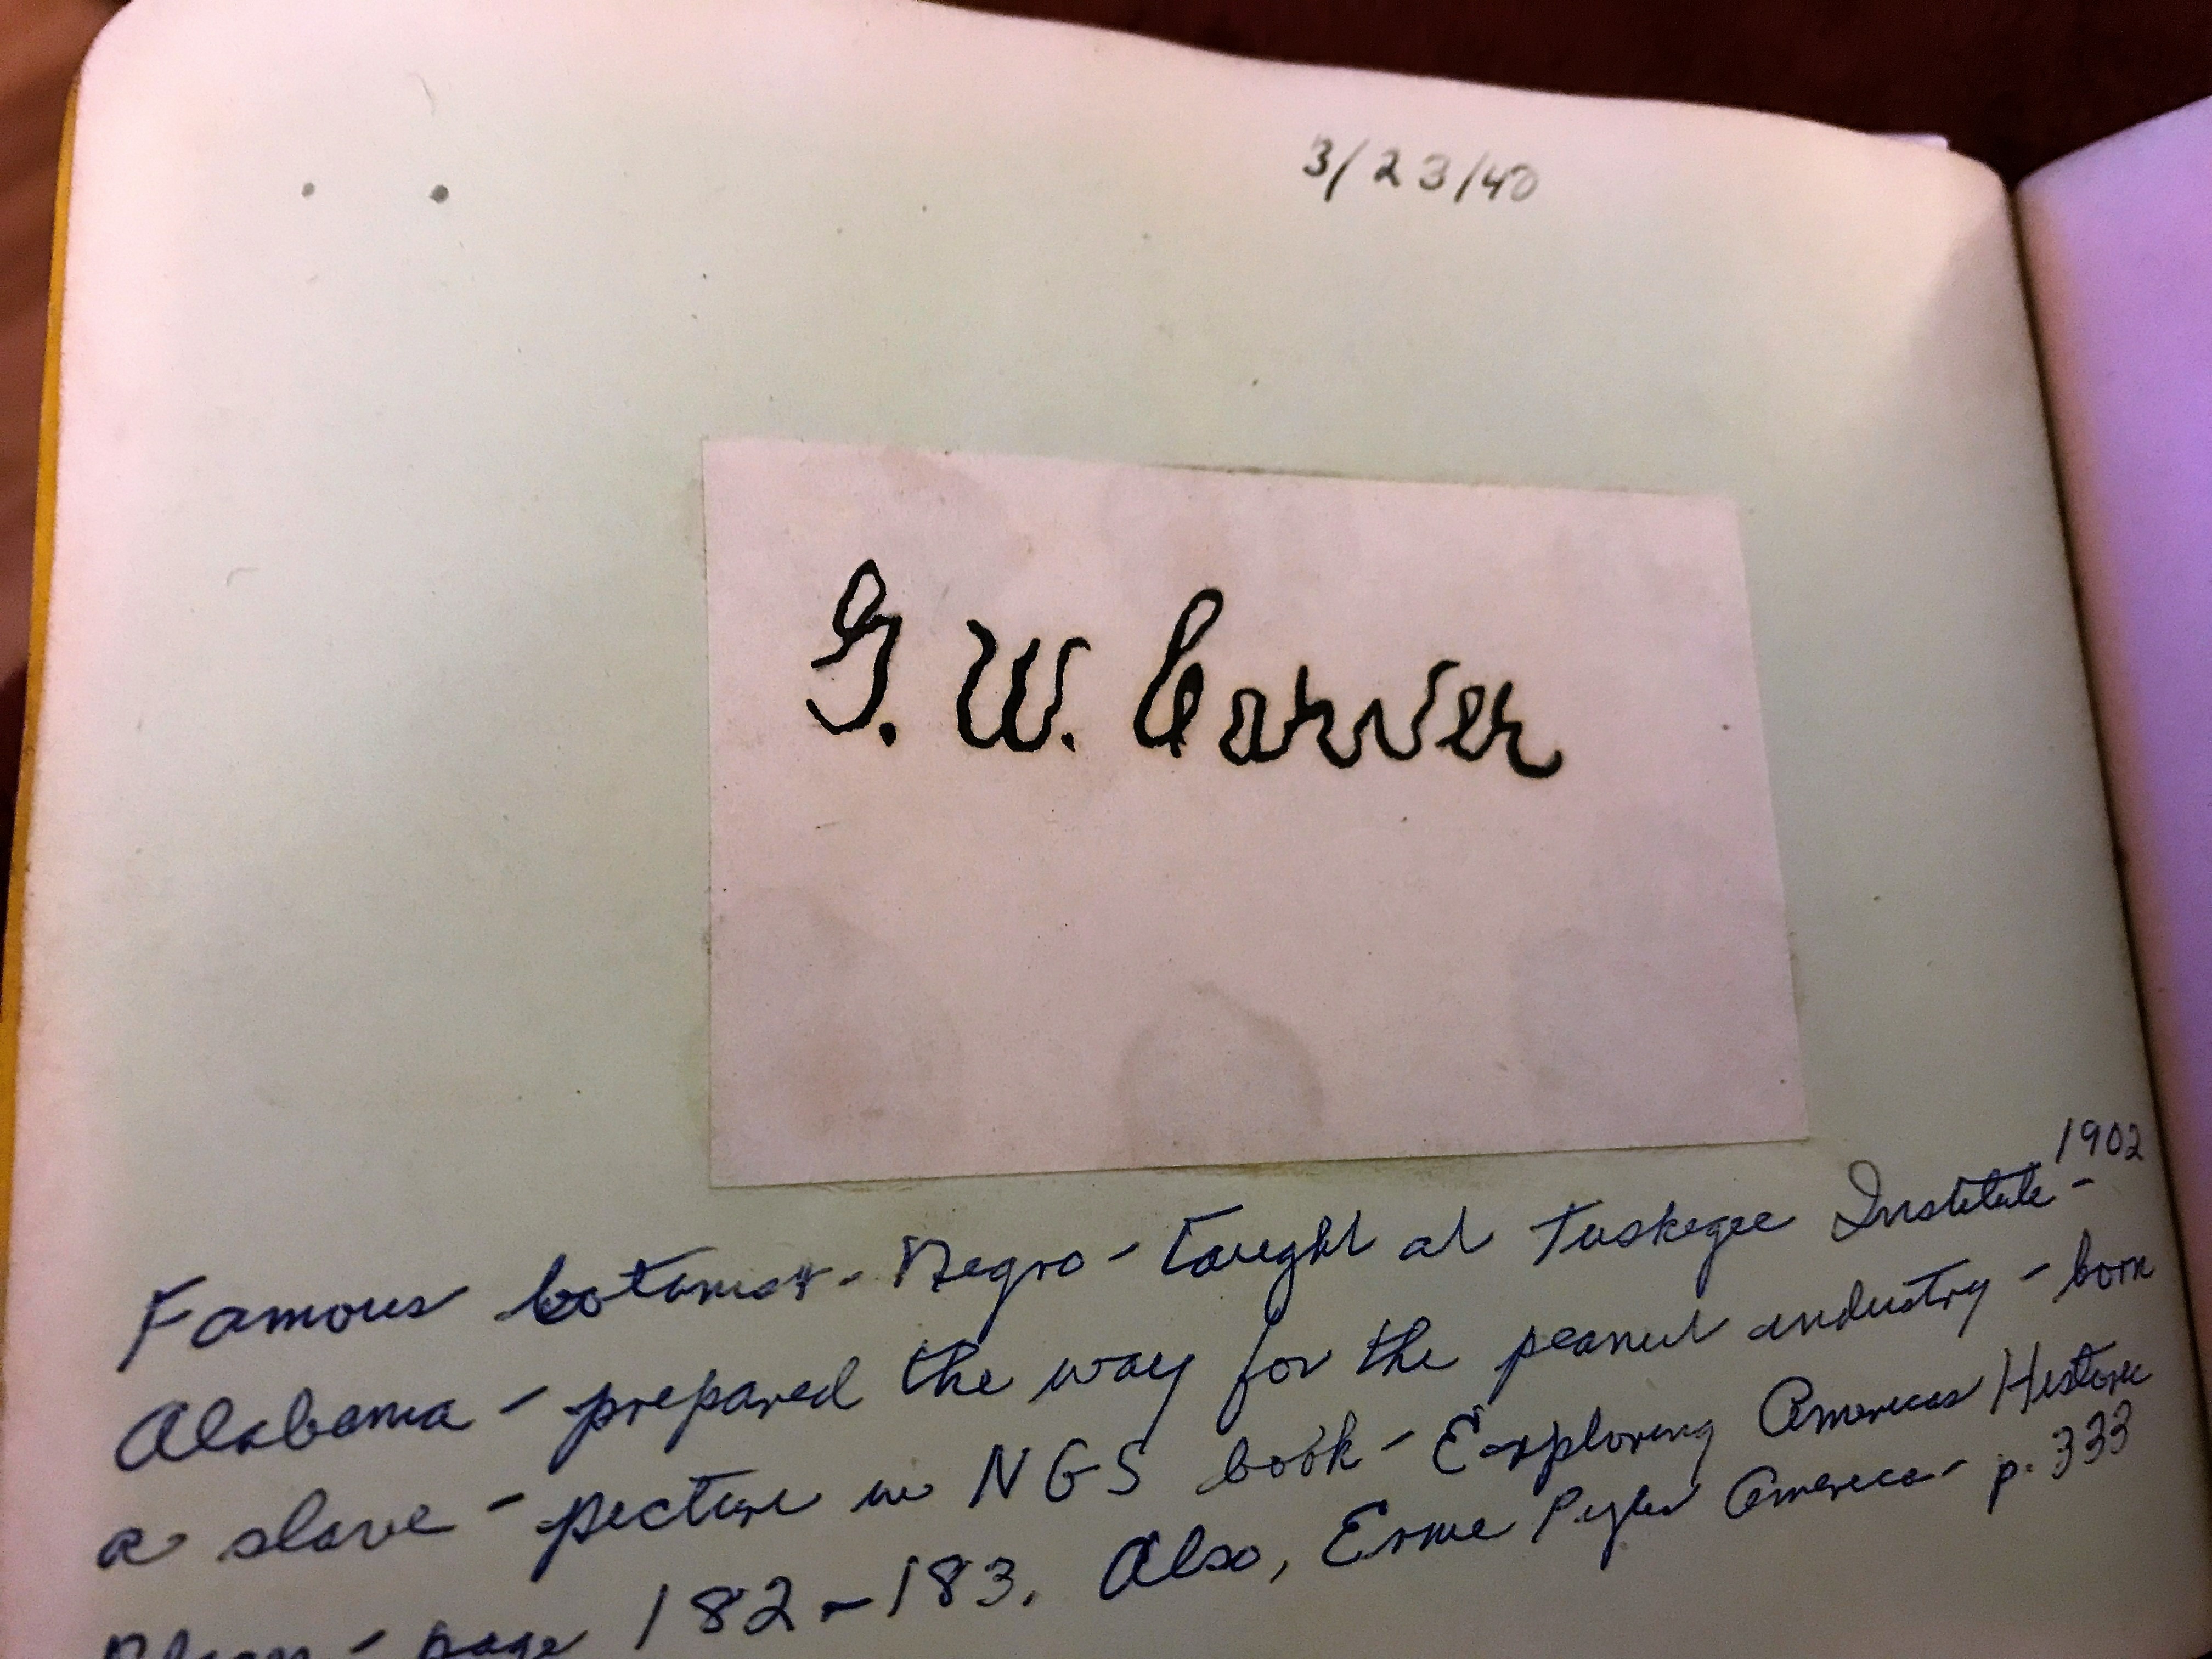 3/23/40
G. W. Carver
1902
Famous botanist - Negro - taught at Tuskegee Institute -
Alabama - prepared the way for the peanut industry - born
a slave - picture in NGS book - Exploring Americas Historic
Places - page 182-183. Also, Ernie Pyles America - p. 333